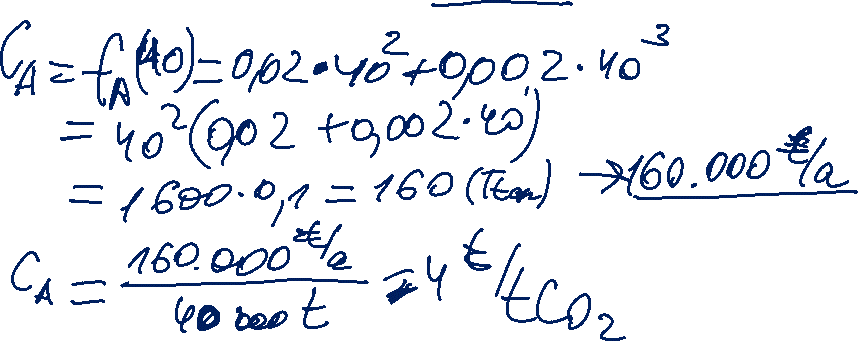 C_A = f_A(40) = 0,02 • 40² + 0,002 · 40³
= 40² (0,02 + 0,002 · 40)
= 1600 · 0,1 = 160 → 160.000 €/a
C_A = 160.000 €/a / 40 000 t = 4 €/tCO₂